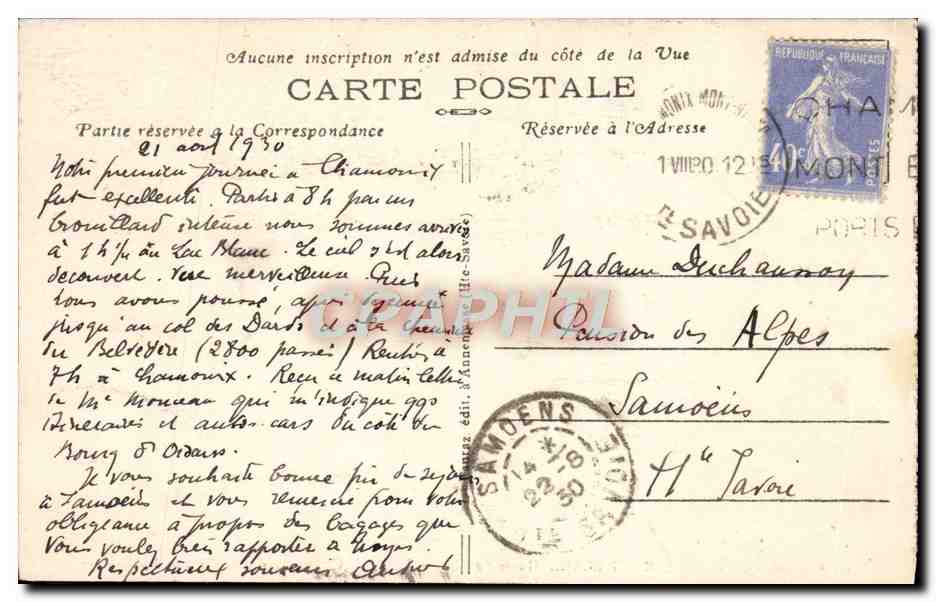 Aucune inscription n'est admise du côté de la Vue
CARTE POSTALE
Partie réservée a la Correspondance
Réservée à l'Adresse
REPUBLIQUE FRANÇAISE
40c
POSTES
CHAM
MONT
PORTS
MONIX MONT
12 15
SAVOIE
21 aout 1930
Notre première journée à Chamonix
fut excellente. Partis à 8h par un
brouillard intense nous sommes arrivés
à 1h ½ au Lac Blanc. Le ciel s'est alors
découvert. Vue merveilleuse. Puis
nous avons poussé, après déjeuner
jusqu'au col des Dards et à la cheminée
du Belvédère (2800 passés) Rentrés à
7h à Chamonix. Reçu ce matin lettre
de Mr Monceau qui m'indique qqs
itinéraires et autos-cars du côté du
Bourg d'Oisans.
Je vous souhaite bonne fin de séjour
à Samoëns et vous remercie pour votre
obligeance à propos des bagages que
vous voulez bien rapporter à
Respectueux souvenir
Madame Duchaussoy
Pension des Alpes
Samoëns
Hte Savoie
SAMOENS
22 -8
30
SAVOIE
édit. à Annemasse (Hte-Savoie)
CPAPHIL